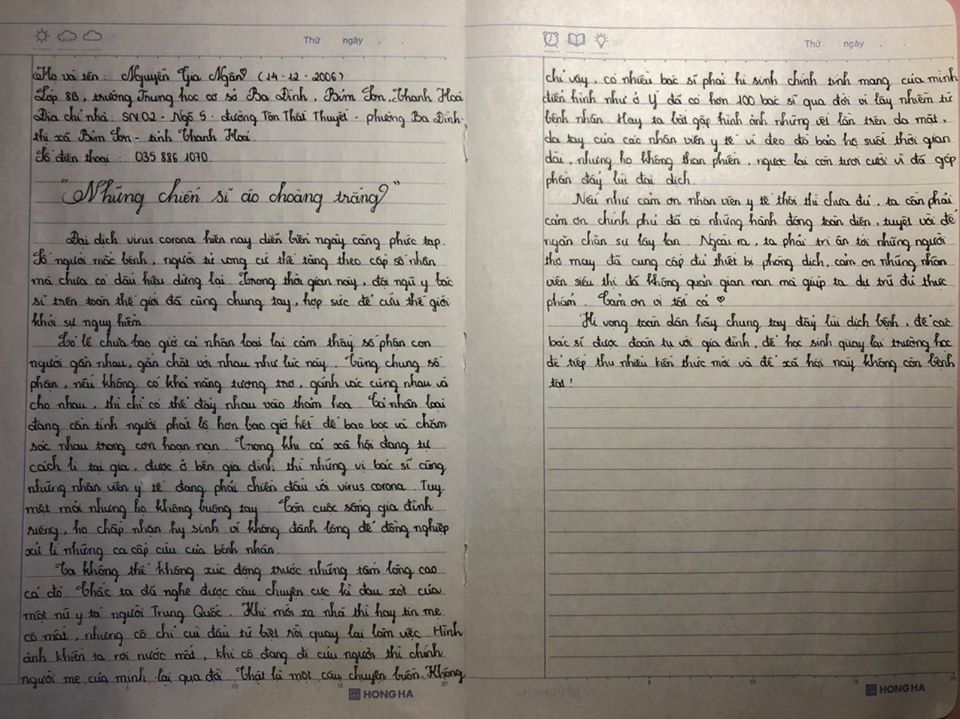 Thứ ngày
Họ và tên : Nguyễn Gia Ngân (14-12-2006)
Lớp 8B, trường Trung học cơ sở Ba Đình, Bỉm Sơn, Thanh Hoá
Địa chỉ nhà : SN 02 - Ngõ 5 - đường Tôn Thất Thuyết - phường Ba Đình -
thị xã Bỉm Sơn - tỉnh Thanh Hoá.
Số điện thoại : 035 886 1070.
"Những chiến sĩ áo choàng trắng"
Đại dịch virus corona hiện nay diễn biến ngày càng phức tạp.
Số người mắc bệnh, người tử vong cứ thế tăng theo cấp số nhân
mà chưa có dấu hiệu dừng lại. Trong thời gian này, đội ngũ y bác
sĩ trên toàn thế giới đã cùng chung tay, hợp sức để cứu thế giới
khỏi sự nguy hiểm.
Có lẽ chưa bao giờ cả nhân loại lại cảm thấy số phận con
người gần nhau, gắn chặt với nhau như lúc này. Cùng chung số
phận, nếu không có khả năng tương trợ, gánh vác cùng nhau và
cho nhau, thì chỉ có thể đẩy nhau vào thảm hoạ. Cả nhân loại
đang cần tình người phát lộ hơn bao giờ hết để bao bọc và chăm
sóc nhau trong cơn hoạn nạn. Trong khi cả xã hội đang tự
cách li tại gia, được ở bên gia đình thì những vị bác sĩ cùng
những nhân viên y tế đang phải chiến đấu với virus corona. Tuy
mệt mỏi nhưng họ không buông tay. Còn cuộc sống gia đình
riêng, họ chấp nhận hy sinh vì không đành lòng để đồng nghiệp
xử lí những ca cấp cứu của bệnh nhân.
Ta không thể không xúc động trước những tấm lòng cao
cả đó. Chắc ta đã nghe được câu chuyện cực kì đau xót của
một nữ y tá người Trung Quốc. Khi mới xa nhà thì hay tin mẹ
cô mất, nhưng cô chỉ cúi đầu từ biệt rồi quay lại làm việc. Hình
ảnh khiến ta rơi nước mắt, khi cô đang đi cứu người thì chính
người mẹ của mình lại qua đời. Thật là một câu chuyện buồn. Không
HONG HA
Thứ ngày
chỉ vậy, có nhiều bác sĩ phải hi sinh chính tính mạng của mình
điển hình như ở Ý đã có hơn 100 bác sĩ qua đời vì lây nhiễm từ
bệnh nhân. Hay ta bắt gặp hình ảnh những vết lằn trên da mặt,
da tay của các nhân viên y tế vì đeo đồ bảo hộ suốt thời gian
dài, nhưng họ không than phiền, ngược lại còn tươi cười vì đã góp
phần đẩy lùi đại dịch.
Nếu như cảm ơn nhân viên y tế thôi thì chưa đủ, ta cần phải
cảm ơn chính phủ đã có những hành động toàn diện, tuyệt vời để
ngăn chặn sự lây lan. Ngoài ra, ta phải tri ân tới những người
thợ may đã cung cấp đủ thiết bị phòng dịch, cảm ơn những nhân
viên siêu thị đã không quản gian nan mà giúp ta dự trữ đủ thực
phẩm. Cảm ơn vì tất cả ♡
Hi vọng toàn dân hãy chung tay đẩy lùi dịch bệnh, để các
bác sĩ được đoàn tụ với gia đình, để học sinh quay lại trường học
để tiếp thu nhiều kiến thức mới và để xã hội này không còn bệnh
tật!
HONG HA